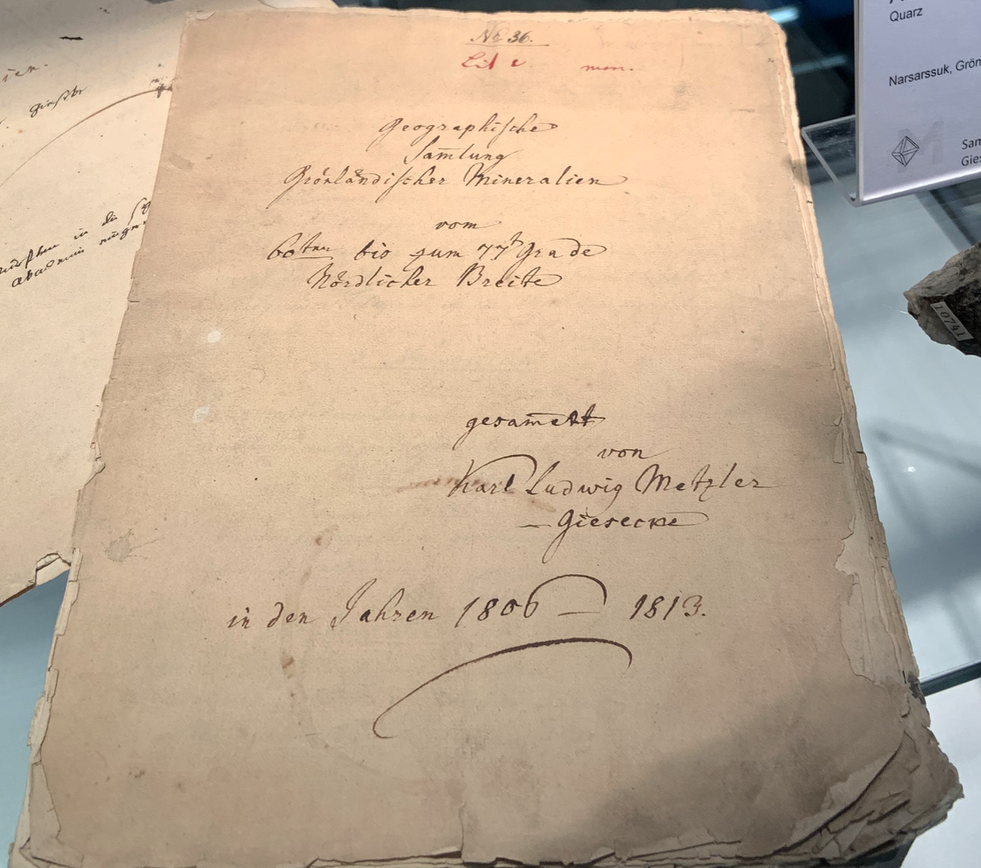 No 36.
Geographische
Sam̅lung
Grönländischer Mineralien
vom
60ten bis zum 77t Grade
Nördlicher Breite
gesam̅elt
von
Karl Ludwig Metzler
– Giesecke
in den Jahren 1806 – 1813.
Quarz
Narsarssuk, Grön
Sam
Gies
10741
in die